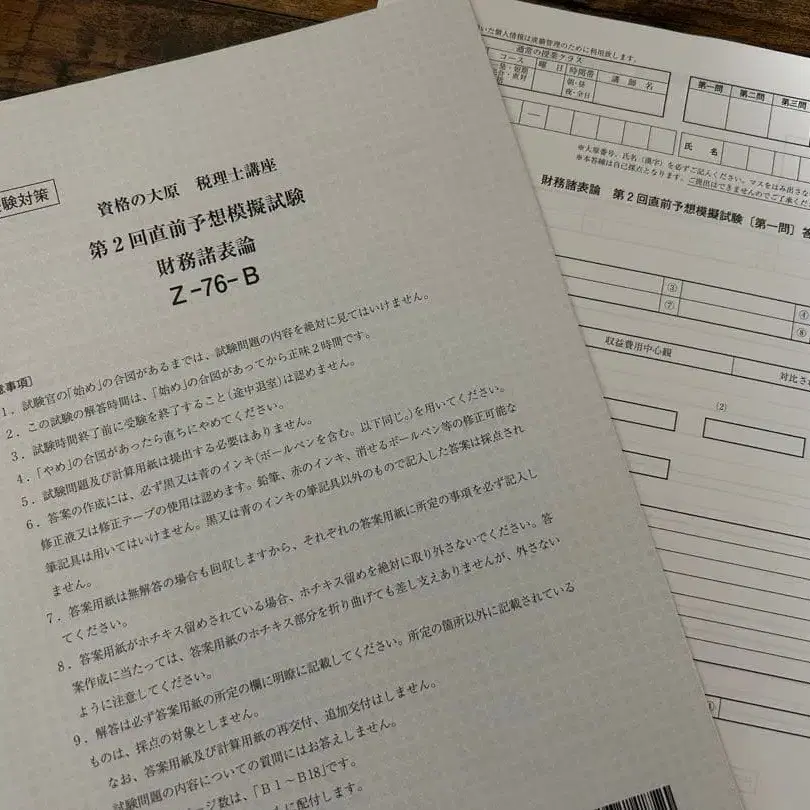 験対策
資格の大原 税理士講座
第2回直前予想模擬試験
財務諸表論
Z-76-B
意事項〕
1．試験官の「始め」の合図があるまでは、試験問題の内容を絶対に見てはいけません。
2．この試験の解答時間は、「始め」の合図があってから正味2時間です。
3．試験時間終了前に受験を終了すること(途中退室)は認めません。
4．「やめ」の合図があったら直ちにやめてください。
5．試験問題及び計算用紙は提出する必要はありません。
6．答案の作成には、必ず黒又は青のインキ(ボールペンを含む。以下同じ。)を用いてください。
修正液又は修正テープの使用は認めます。鉛筆、赤のインキ、消せるボールペン等の修正可能な
筆記具は用いてはいけません。黒又は青のインキの筆記具以外のもので記入した答案は採点され
ません。
7．答案用紙は無解答の場合も回収しますから、それぞれの答案用紙に所定の事項を必ず記入し
てください。
8．答案用紙がホチキス留めされている場合、ホチキス留めを絶対に取り外さないでください。答
案作成に当たっては、答案用紙のホチキス部分を折り曲げても差し支えありませんが、外さない
ように注意してください。
9．解答は必ず答案用紙の所定の欄に明瞭に記載してください。所定の箇所以外に記載されている
ものは、採点の対象としません。
なお、答案用紙及び計算用紙の再交付、追加交付はしません。
試験問題の内容についての質問にはお答えしません。
ージ数は、「B1～B18」です。
に配付します。
いた個人情報は成績管理のために利用致します。
通常の授業クラス
コース 曜日 時間帯 講師名
朝・昼
夜・全日
第一問 第二問 第三問
氏名
※大原番号、氏名(漢字)を必ずご記入ください。マスをはみ出さな
※本答練は自己採点となります。ご提出はできませんのでご了承くださ
財務諸表論 第2回直前予想模擬試験〔第一問〕答
③
④
⑦
⑧
収益費用中心観
対比さ
(2)